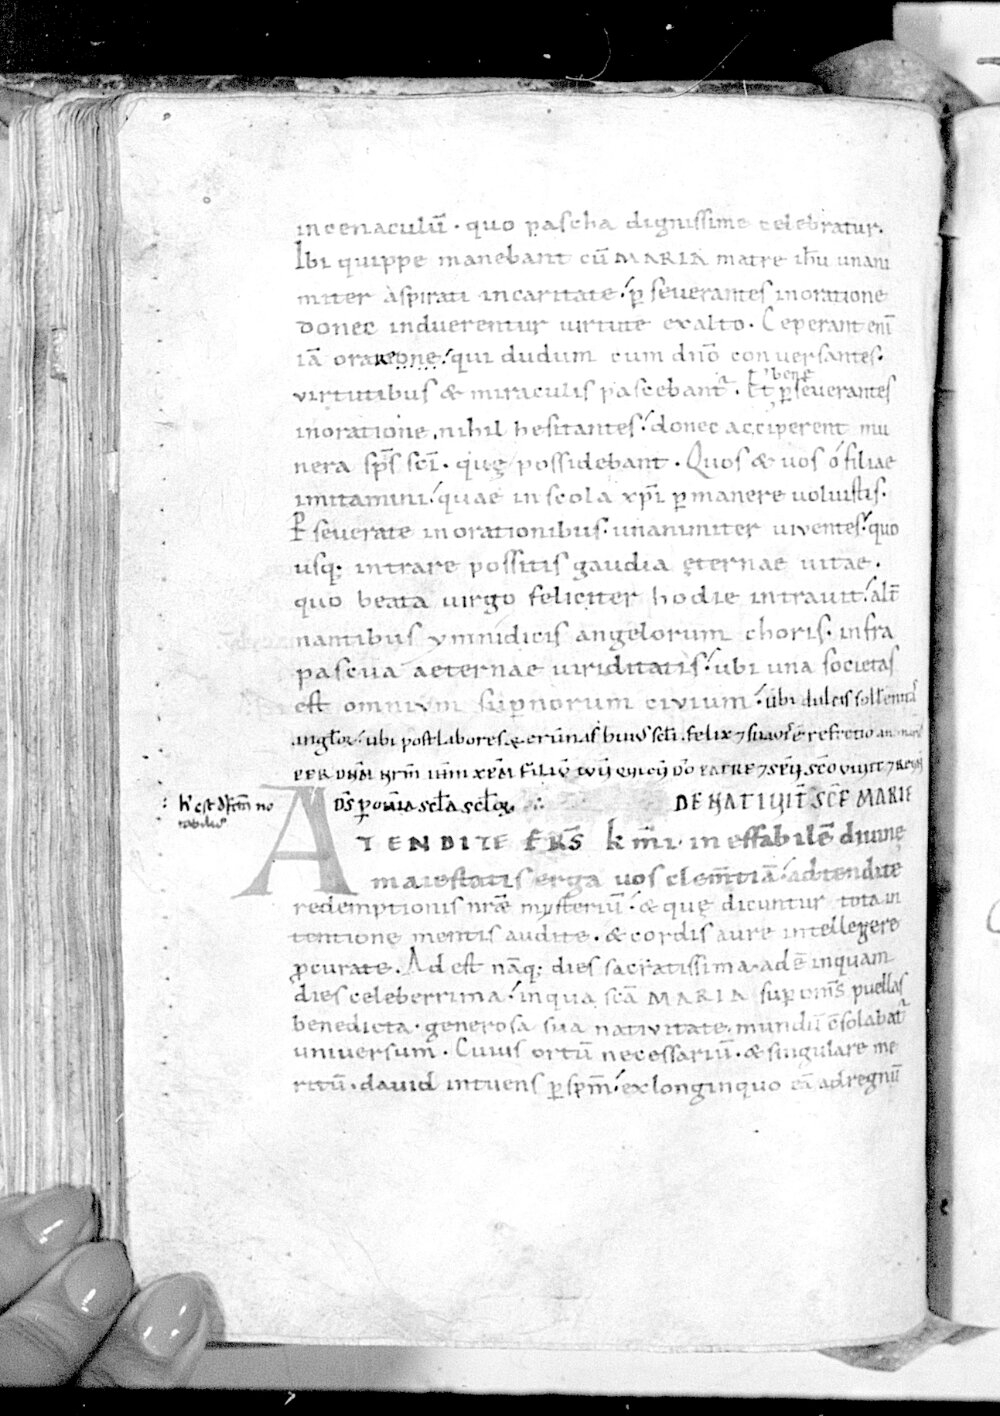 in cenaculū · quo pascha dignissime celebratur.
Ibi quippe manebant cū MARIA matre ihū unani
miter aspirati in caritate · p̱severantes in oratione
donec induerentur virtute ex alto. Ceperant enī
iā orare qui dudum cum dño conversantes.
bene
virtutibus & miraculis pascebant̄. Et p̱severantes
in oratione, nihil hesitantes · donec acciperent mu
nera sp̄s sc̄i · quę possidebant. Quos & vos ó filiae
imitamini · quae in scola xp̄i p̱manere voluistis.
P̱severate in orationibus · unanimiter viventes · quo
usq; intrare possitis gaudia ęternae vitae.
quo beata virgo feliciter hodie intravit · alt̄
nantibus ymnidicis angelorum choris · infra
pascua aeternae viriditatis · ubi una societas
est omnium sup̱norum civium · ubi dulcis
ubi post labores & erūnas huius scl̄i · felix ⁊ refectio
PER DN̄M N̄RM IHM XP̄M FILIŪ
D̄S p̱ om̄ia scl̄a scl̄oꝝ. DE NATIVIT̄ SC̄E MARIE
h̄ est no
tabilius
ATENDITE FR̄S k̄mi · in effabilē divine
maiestatis erga vos clem̄tiā · adtendite
redemptionis nr̄ae mysteriū · & quę dicuntur tota in
tentione mentis audite · & cordis aure intellegere
p̱curate. Ad est nāq; dies sacratissima · ad ē inquam
dies celeberrima · in qua sc̄a MARIA sup̱ om̄s puellas
benedicta · generosa sua nativitate · mundū c̄solabat̄
universum. Cuius ortū necessariū · & singulare me
ritū · david intuens p̱ sp̄m · ex longinquo eā ad regnū